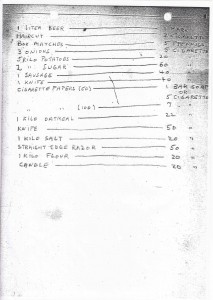 1 LITER BEER
HAIRCUT
BOX MATCHES
3 ONIONS 5 CIGARETTES
5 KILO POTATOES 20 "
2 " SUGAR 60 "
1 SAUSAGE 40 "
1 KNIFE 40 "
CIGARETTE PAPERS (50) 1 BAR SOAP
OR
5 CIGARETTES
" " (100) 7 "
1 KILO OATMEAL 22
KNIFE 50 "
1 KILO SALT 20 "
STRAIGHT EDGE RAZOR 50 "
1 KILO FLOUR 30 "
CANDLE 20 "